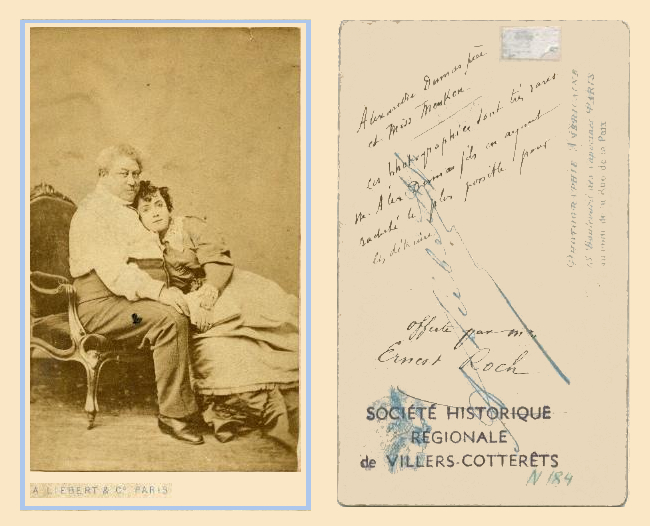 A. LIEBERT & Cº PARIS
Alexandre Dumas père
et Miss Menken.
ces photographies sont très rares
M. Alex Dumas fils en ayant
racheté le plus possible pour
les détruire
offerte par mr
Ernest Roch
SOCIÉTÉ HISTORIQUE
RÉGIONALE
de VILLERS-COTTERÊTS
N 184
PHOTOGRAPHIE AMÉRICAINE
Boulevard des Capucines PARIS
au coin de la Rue de la Paix